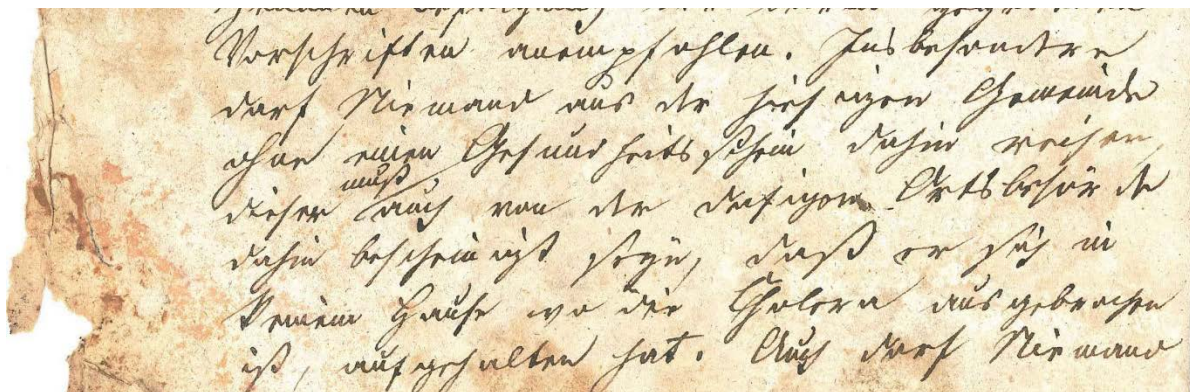 Vorschriften anempfohlen. Insbesondere
darf Niemand aus der hiesigen Gemeinde
ohne einen Gesundheitsschein dahin reisen,
dieser muß auch von der dasigen Ortsbehörde
dahin bescheinigt seyn, daß er sich in
keinem Hause wo die Cholera ausgebrochen
ist, aufgehalten hat. Auch darf Niemand